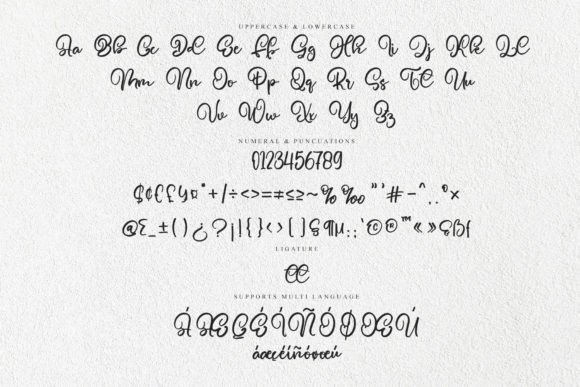 UPPERCASE & LOWERCASE
Aa Bb Cc Dd Ee Ff Gg Hh Ii Jj Kk Ll
Mm Nn Oo Pp Qq Rr Ss Tt Uu
Vv Ww Xx Yy Zz
NUMERAL & PUNCUATIONS
0123456789
$¢€£¥¤*+/÷<>=≠≤≥~%‰"'#-^.,°×
@&_±()¿?¡|{}‹›[]§¶µ:;'©®™«»
LIGATURE
SUPPORTS MULTI LANGUAGE